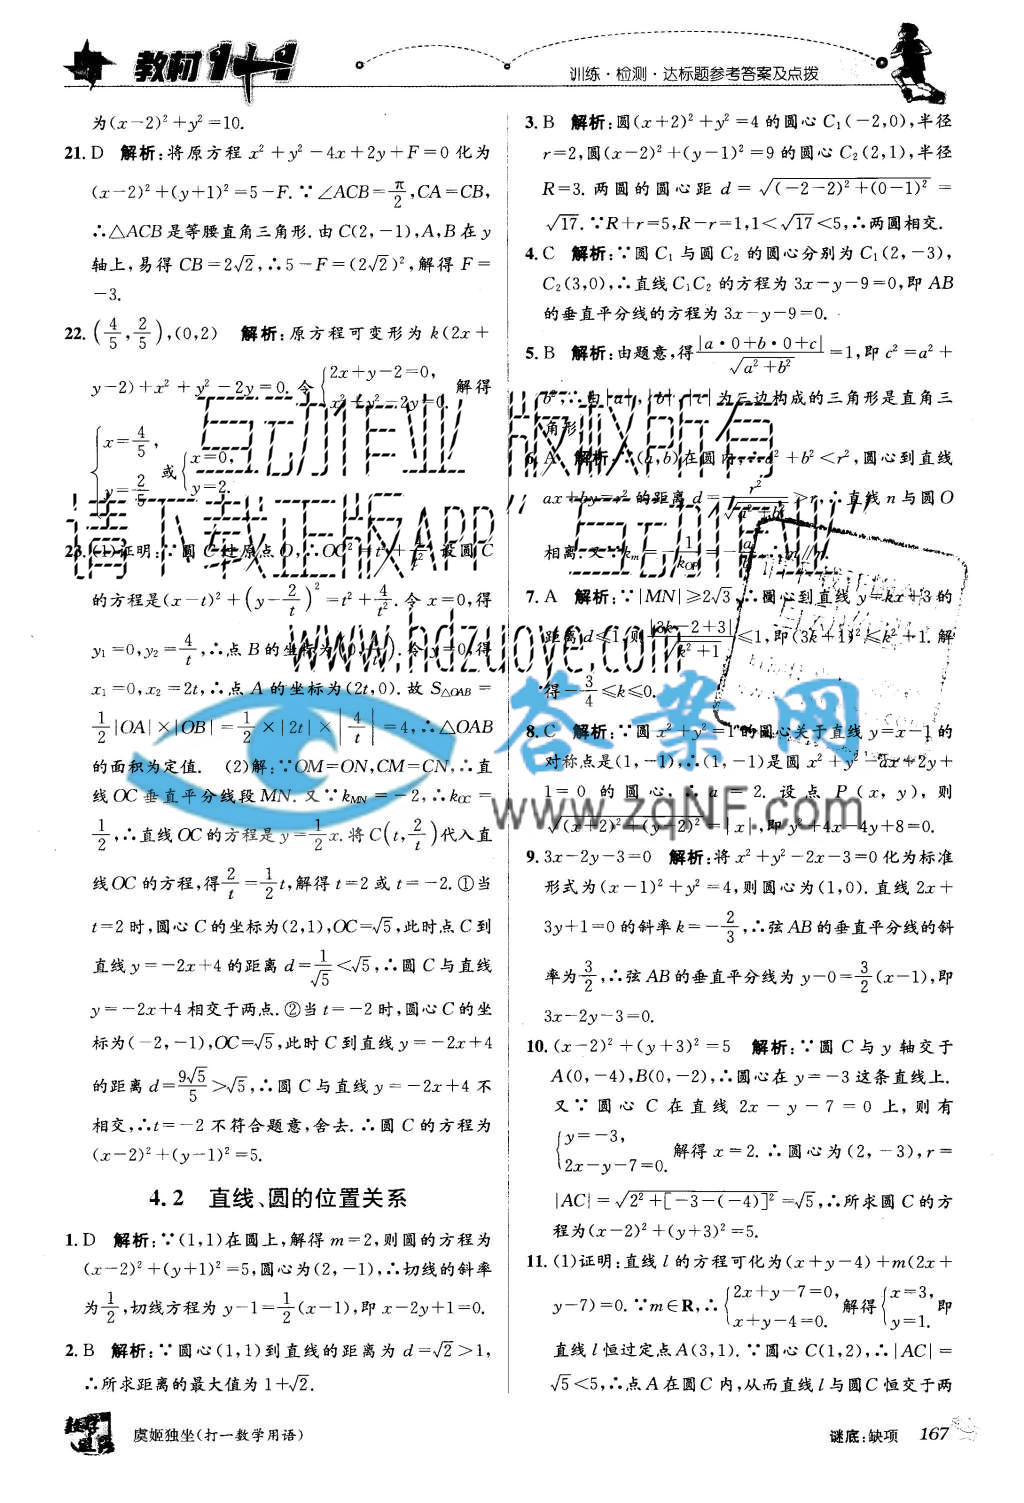 教材1+1
训练·检测·达标题参考答案及点拨
为(x-2)²+y²=10.
21. D 解析:将原方程 x²+y²-4x+2y+F=0 化为
(x-2)²+(y+1)²=5-F.∵∠ACB=π/2,CA=CB,
∴△ACB是等腰直角三角形.由C(2,-1),A,B在y
轴上,易得 CB=2√2,∴5-F=(2√2)²,解得 F=
-3.
22. (4/5,2/5),(0,2) 解析:原方程可变形为 k(2x+
y-2)+x²+y²-2y=0.令{2x+y-2=0, x²+y²-2y=0. 解得
{x=4/5, y=2/5 或{x=0, y=2.
23. (1)证明:∵圆C过原点O,∴OC²=t²+4/t².设圆C
的方程是(x-t)²+(y-2/t)²=t²+4/t².令 x=0,得
y₁=0,y₂=4/t,∴点B的坐标为(0,4/t).令y=0,得
x₁=0,x₂=2t,∴点A的坐标为(2t,0).故 S△OAB=
1/2|OA|×|OB|=1/2×|2t|×|4/t|=4,∴△OAB
的面积为定值. (2)解:∵OM=ON,CM=CN,∴直
线OC垂直平分线段MN.又∵kMN=-2,∴kOC=
1/2,∴直线OC的方程是y=1/2x.将C(t,2/t)代入直
线OC的方程,得2/t=1/2t,解得t=2或t=-2.①当
t=2时,圆心C的坐标为(2,1),OC=√5,此时点C到
直线y=-2x+4的距离d=1/√5<√5,∴圆C与直线
y=-2x+4相交于两点.②当t=-2时,圆心C的坐
标为(-2,-1),OC=√5,此时C到直线y=-2x+4
的距离d=9√5/5>√5,∴圆C与直线y=-2x+4不
相交,∴t=-2不符合题意,舍去.∴圆C的方程为
(x-2)²+(y-1)²=5.
4.2 直线、圆的位置关系
1. D 解析:∵(1,1)在圆上,解得m=2,则圆的方程为
(x-2)²+(y+1)²=5,圆心为(2,-1),∴切线的斜率
为1/2,切线方程为 y-1=1/2(x-1),即 x-2y+1=0.
2. B 解析:∵圆心(1,1)到直线的距离为 d=√2>1,
∴所求距离的最大值为1+√2.
3. B 解析:圆(x+2)²+y²=4的圆心C₁(-2,0),半径
r=2,圆(x-2)²+(y-1)²=9的圆心C₂(2,1),半径
R=3.两圆的圆心距 d=√(-2-2)²+(0-1)²=
√17.∵R+r=5,R-r=1,1<√17<5,∴两圆相交.
4. C 解析:∵圆C₁与圆C₂的圆心分别为C₁(2,-3),
C₂(3,0),∴直线C₁C₂的方程为3x-y-9=0,即AB
的垂直平分线的方程为3x-y-9=0.
5. B 解析:由题意,得|a·0+b·0+c|/√a²+b²=1,即c²=a²+
b²,∴由|a|,|b|,|c|为三边构成的三角形是直角三
角形.
6. A 解析:∵(a,b)在圆内,∴a²+b²<r²,圆心到直线
ax+by=r²的距离d=r²/√a²+b²>r,∴直线n与圆O
相离.又∵km=-1/kOP=-a/b,∴m∥n.
7. A 解析:∵|MN|≥2√3,∴圆心到直线y=kx+3的
距离d≤1,则|3k-2+3|/√k²+1≤1,即(3k+1)²≤k²+1.解
得-3/4≤k≤0.
8. C 解析:∵圆x²+y²=1的圆心关于直线y=x-1的
对称点是(1,-1),∴(1,-1)是圆x²+y²-ax+2y+
1=0的圆心,∴a=2.设点P(x,y),则
√(x+2)²+(y-2)²=|x|,即y²+4x-4y+8=0.
9. 3x-2y-3=0 解析:将x²+y²-2x-3=0化为标准
形式为(x-1)²+y²=4,则圆心为(1,0).直线2x+
3y+1=0的斜率k=-2/3,∴弦AB的垂直平分线的斜
率为3/2,∴弦AB的垂直平分线为y-0=3/2(x-1),即
3x-2y-3=0.
10. (x-2)²+(y+3)²=5 解析:∵圆C与y轴交于
A(0,-4),B(0,-2),∴圆心在y=-3这条直线上.
又∵圆心C在直线2x-y-7=0上,则有
{y=-3, 2x-y-7=0. 解得x=2.∴圆心为(2,-3),r=
|AC|=√2²+[-3-(-4)]²=√5,∴所求圆C的方
程为(x-2)²+(y+3)²=5.
11. (1)证明:直线l的方程可化为(x+y-4)+m(2x+
y-7)=0.∵m∈R,∴{2x+y-7=0, x+y-4=0. 解得{x=3, y=1. 即
直线l恒过定点A(3,1).∵圆心C(1,2),∴|AC|=
√5<5,∴点A在圆C内,从而直线l与圆C恒交于两
"互动作业"版权所有
请下载正版APP"互动作业"
www.hdzuoye.com
答案网
www.zqNF.com
虞姬独坐(打一数学用语)
谜底:缺项 167